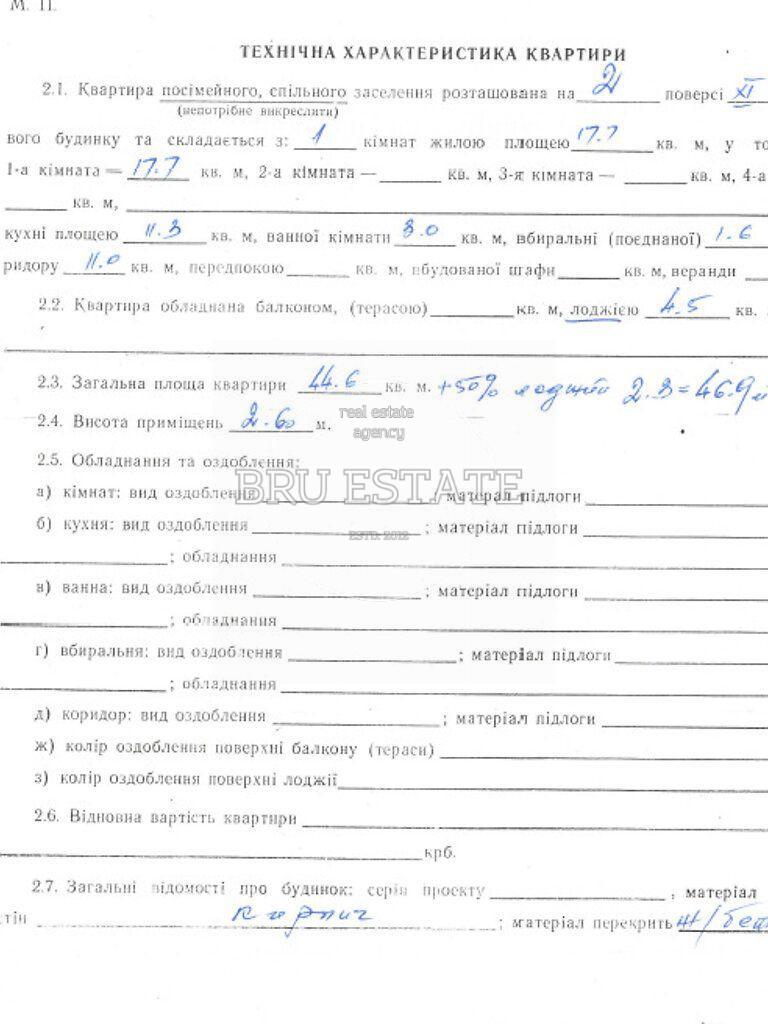 М. П.
ТЕХНІЧНА ХАРАКТЕРИСТИКА КВАРТИРИ
2.1. Квартира посімейного, спільного заселення розташована на 2 поверсі XI
(непотрібне викреслити)
вого будинку та складається з: 1 кімнат жилою площею 17.7 кв. м, у то
1-а кімната — 17.7 кв. м, 2-а кімната — кв. м, 3-я кімната — кв. м, 4-а
кв. м,
кухні площею 11.3 кв. м, ванної кімнати 3.0 кв. м, вбиральні (поєднаної) 1.6
ридору 11.0 кв. м, передпокою кв. м, вбудованої шафи кв. м, веранди
2.2. Квартира обладнана балконом, (терасою) кв. м, лоджією 4.5 кв.
2.3. Загальна площа квартири 44.6 кв. м. +50% лоджии 2.3=46.9м
real estate
agency
2.4. Висота приміщень 2.60 м.
2.5. Обладнання та оздоблення:
BRU ESTATE
а) кімнат: вид оздоблення ; матерал підлоги
ESTD. 2012
б) кухня: вид оздоблення ; матеріал підлоги
; обладнання
в) ванна: вид оздоблення ; матеріал підлоги
; обладнання
г) вбиральня: вид оздоблення ; матеріал підлоги
; обладнання
д) коридор: вид оздоблення ; матеріал підлоги
ж) колір оздоблення поверхні балкону (тераси)
з) колір оздоблення поверхні лоджії
2.6. Відновна вартість квартири
крб.
2.7. Загальні відомості про будинок: серія проекту , матеріал
стін кирпич ; матеріал перекрить ж/бет